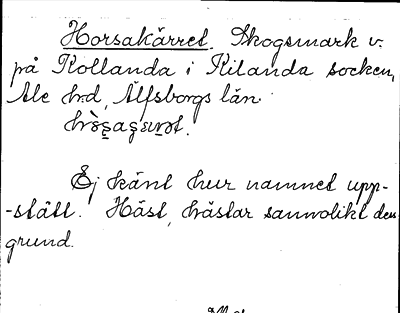 Horsakärret. Skogsmark v.
på Kollanda i Kilanda socken,
Ale hrd, Älfsborgs län.
Ej känt hur namnet upp-
-stått. Häst, hästar sannolikt den
grund.